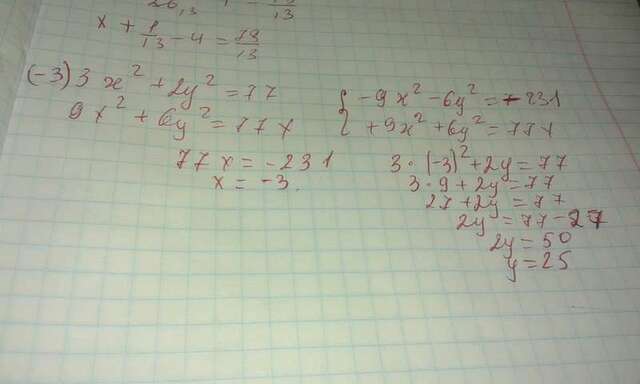 x + 1/13 - 4 = 79/13
(-3) 3x² + 2y² = 77
9x² + 6y² = 77x
77x = -231
x = -3.
{ -9x² - 6y² = -231
+9x² + 6y² = 77x
3·(-3)² + 2y = 77
3·9 + 2y = 77
27 + 2y = 77
2y = 77 - 27
2y = 50
y = 25